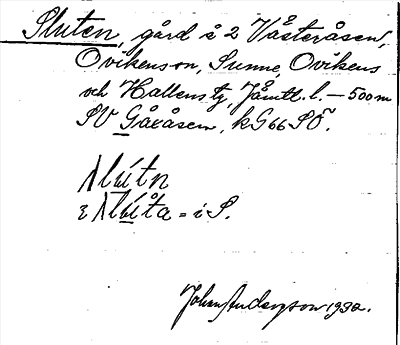 Sluten, gård i 2 Västeråsen,
Ovikenson, Sunne, Ovikens
och Hallens tg, Jämtl. l. — 500 m
SV Gåxåsen, kG66SÖ.
slútn
slúta = i S.
Johan Anderson 1932.